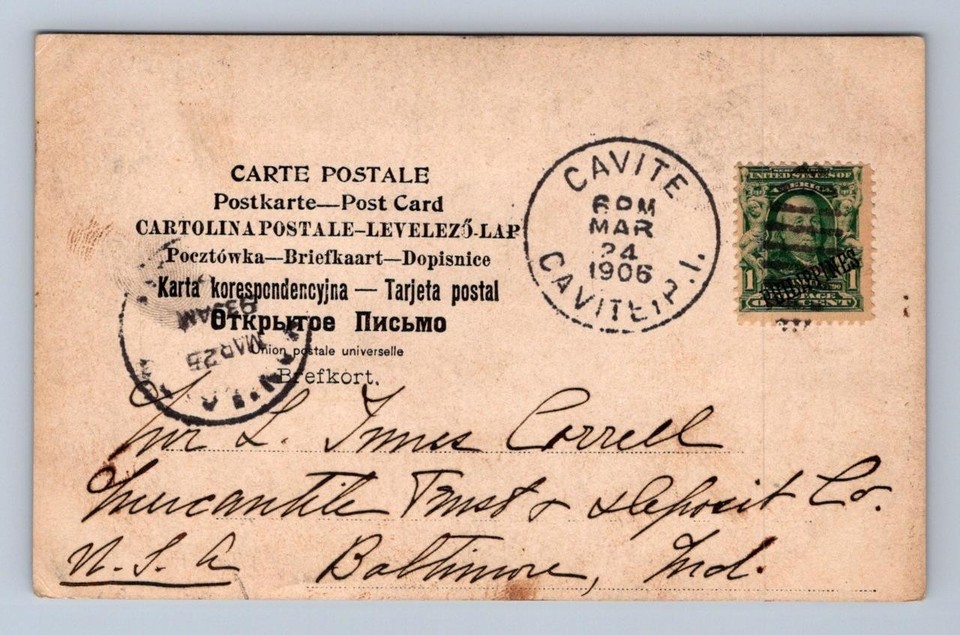 CARTE POSTALE
Postkarte—Post Card
CARTOLINA POSTALE–LEVELEZŐ-LAP
Pocztówka—Briefkaart—Dopisnice
Karta korespondencyjna — Tarjeta postal
Открытое Письмо
Union postale universelle
Brefkort.
CAVITE
6 PM
MAR
24
1906
CAVITE, P.I.
UNITED STATES OF
AMERICA
PHILIPPINES
1 ONE CENT 1
MAR 25
930AM
Mr L. Innes Correll
Mercantile Trust & Deposit Co.
U.S.A Baltimore, Md.